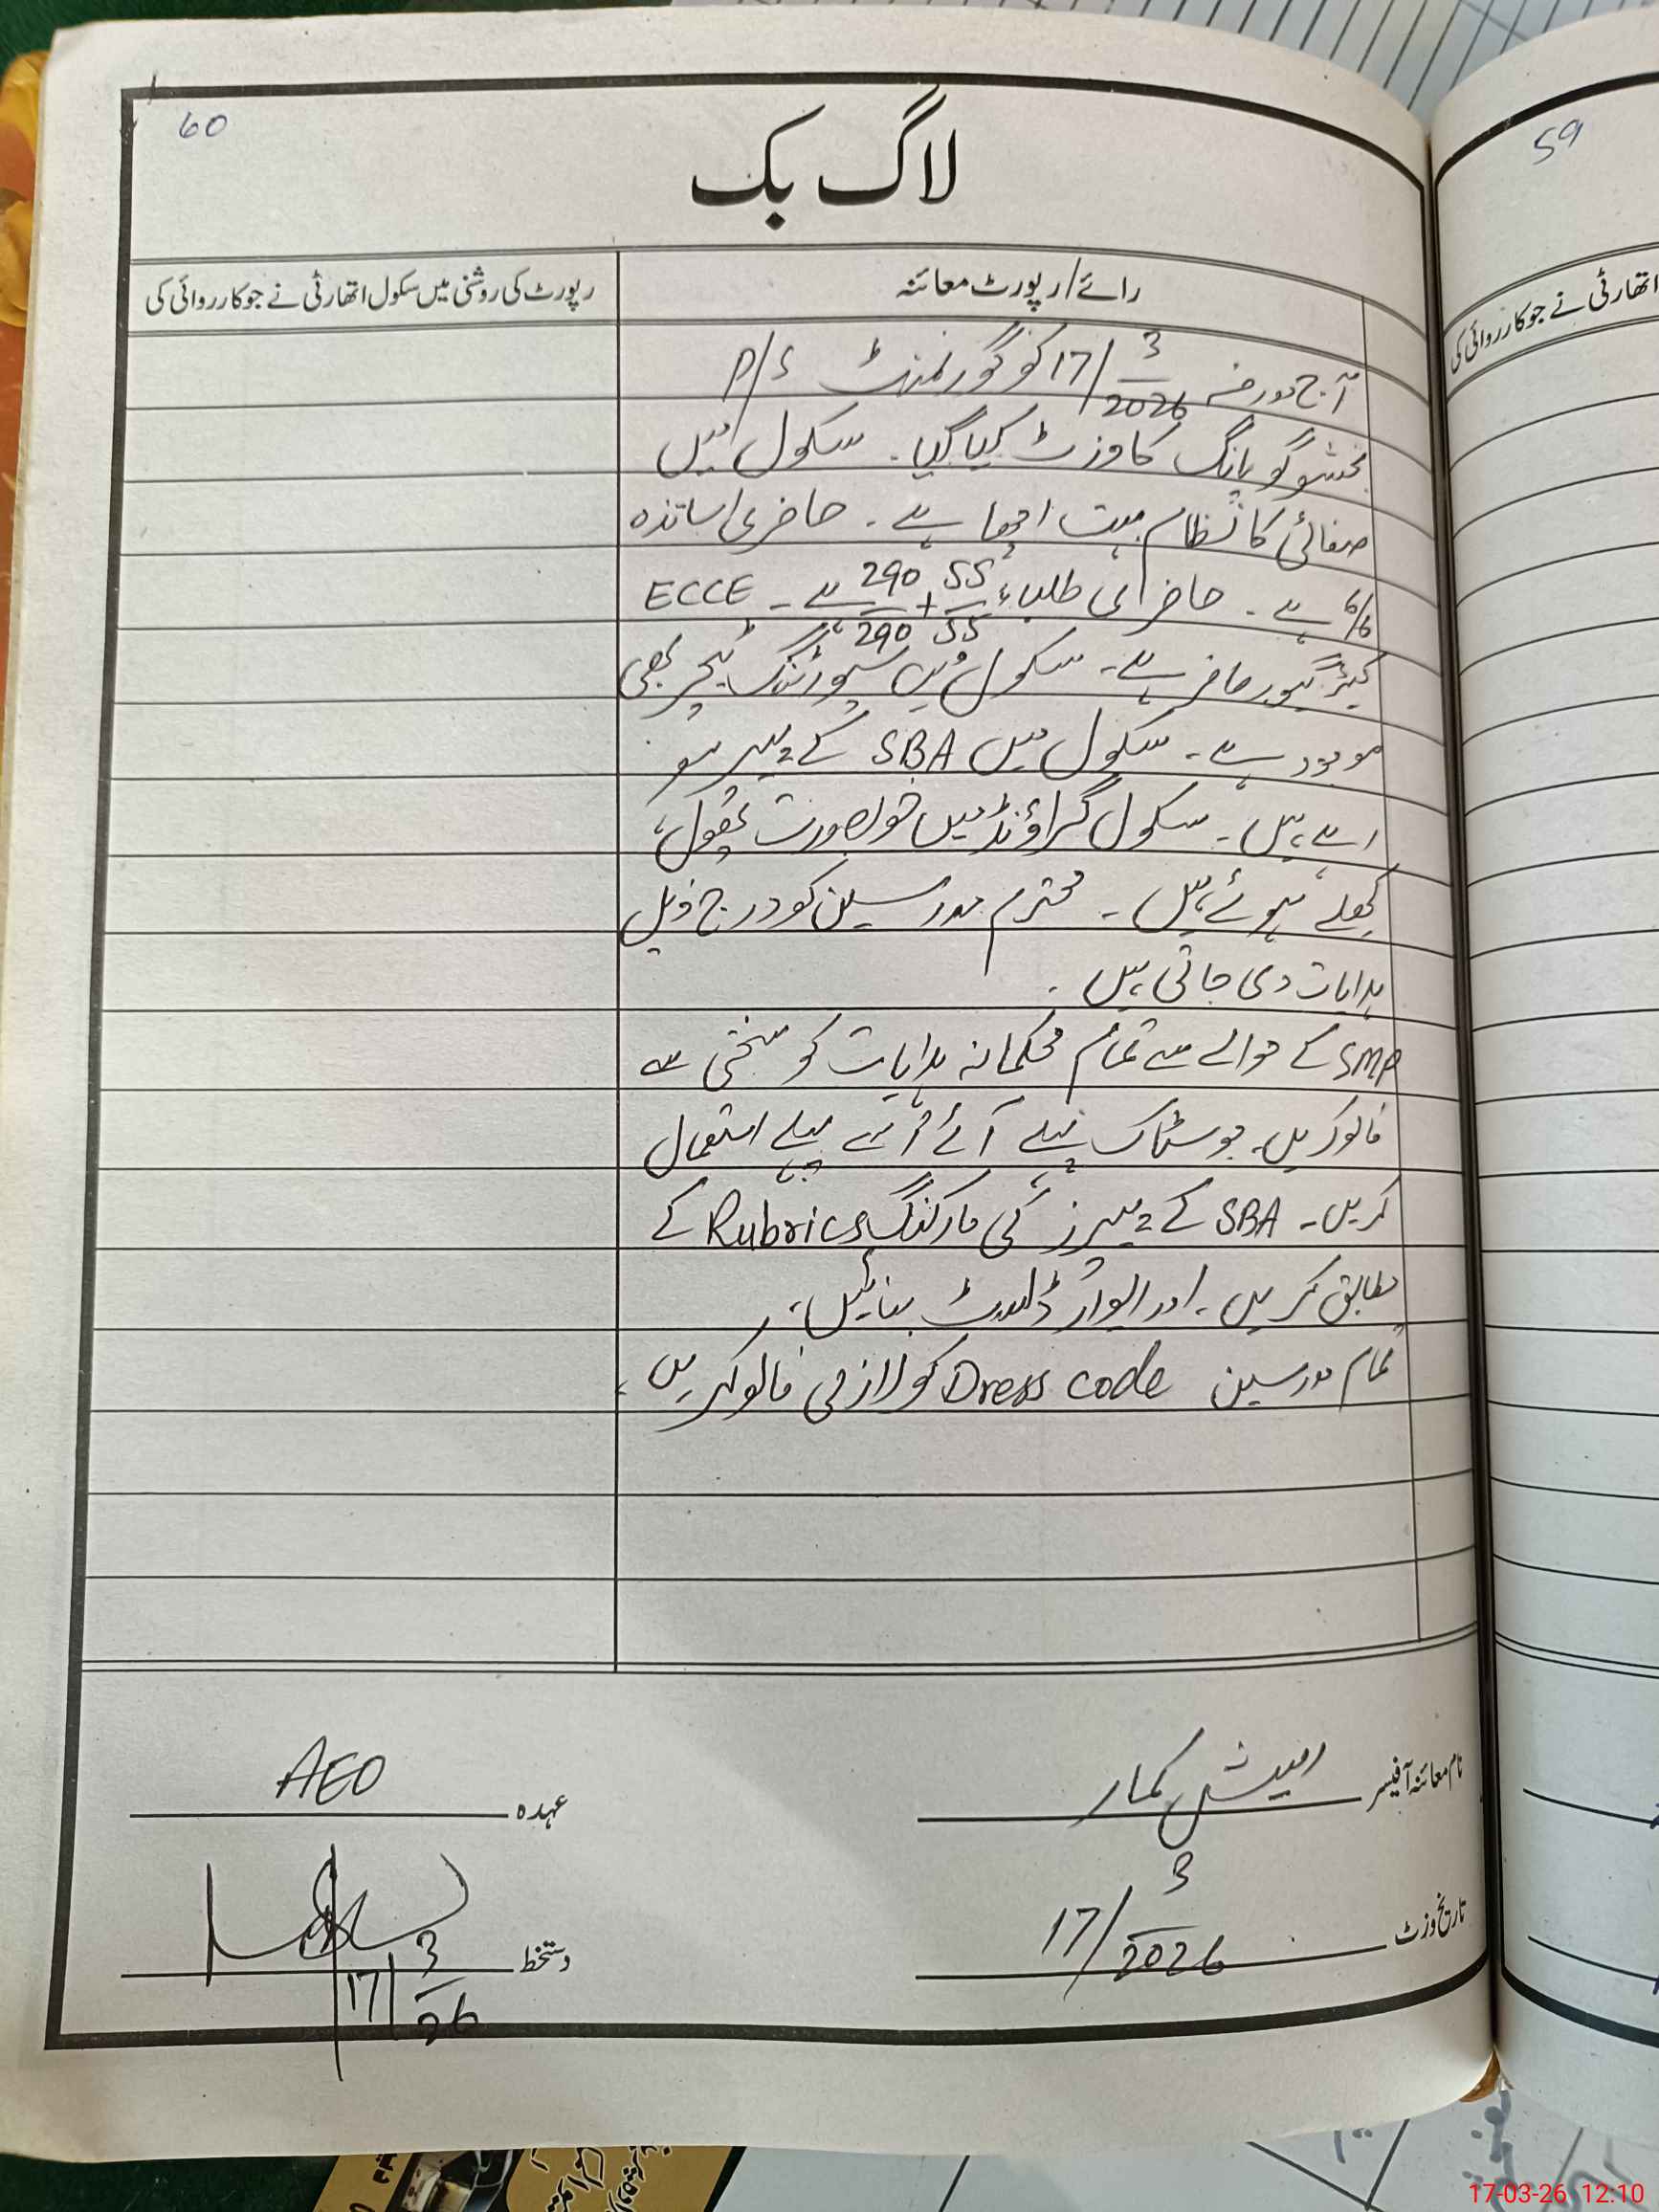 60
لاگ بک
رائے/رپورٹ معائنہ
رپورٹ کی روشنی میں سکول اتھارٹی نے جو کارروائی کی
آج مورخہ 17/3/2026 کو گورنمنٹ P/S
بخشو گوپانگ کا وزٹ کیا گیا۔ سکول میں
صفائی کا نظام بہت اچھا ہے۔ حاضری اساتذہ
6/6 ہے۔ حاضری طلباء 55/55 + 290/290 ہے۔ ECCE
کیئر گیور حاضر ہے۔ سکول میں سپورٹنگ ٹیچر بھی
موجود ہے۔ سکول میں SBA کے پیپر ہو
رہے ہیں۔ سکول گراؤنڈ میں خوبصورت پھول
کھلے ہوئے ہیں۔ محترم مدرسین کو درج ذیل
ہدایات دی جاتی ہیں۔
SMP کے حوالے سے تمام محکمانہ ہدایات کو سختی سے
فالو کریں۔ جو سٹاک پہلے آئے اُسے پہلے استعمال
کریں۔ SBA کے پیپرز کی مارکنگ Rubrics کے
مطابق کریں۔ اور ایوارڈ لسٹ بنائیں۔
تمام مدرسین Dress code کو لازمی فالو کریں۔
نام معائنہ آفیسر رمیش کمار
عہدہ AEO
تاریخ وزٹ 17/3/2026
دستخط
17/3/26
59
اتھارٹی نے جو کارروائی کی
17-03-26 12:10